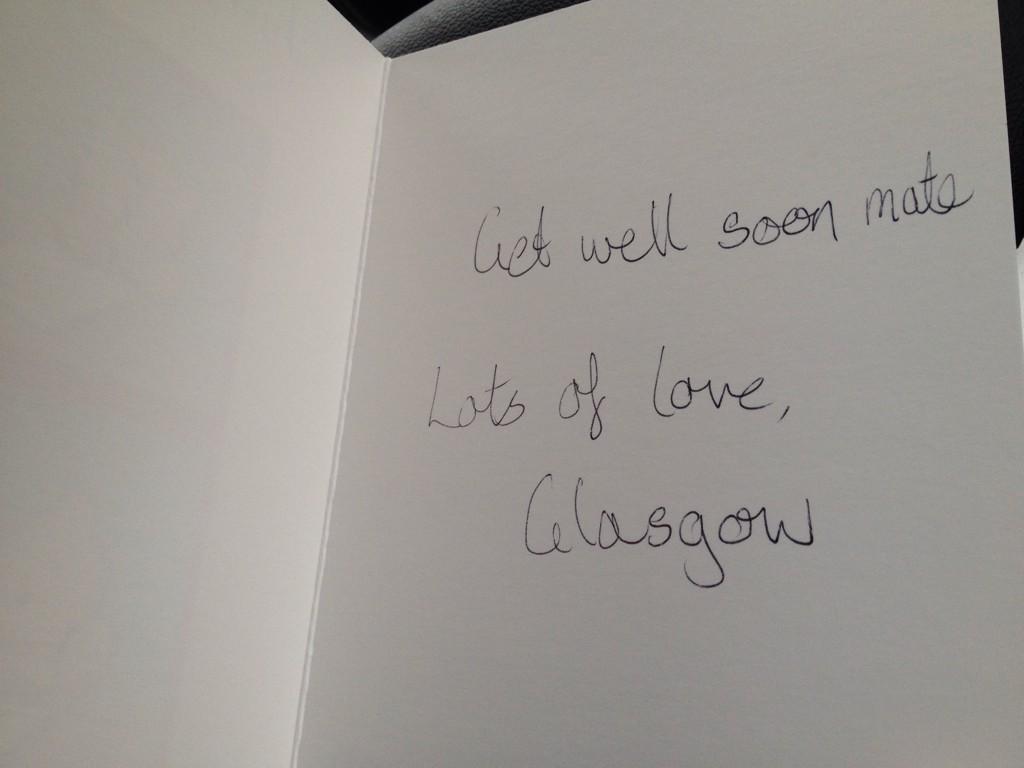 Get well soon mate
Lots of love,
Glasgow